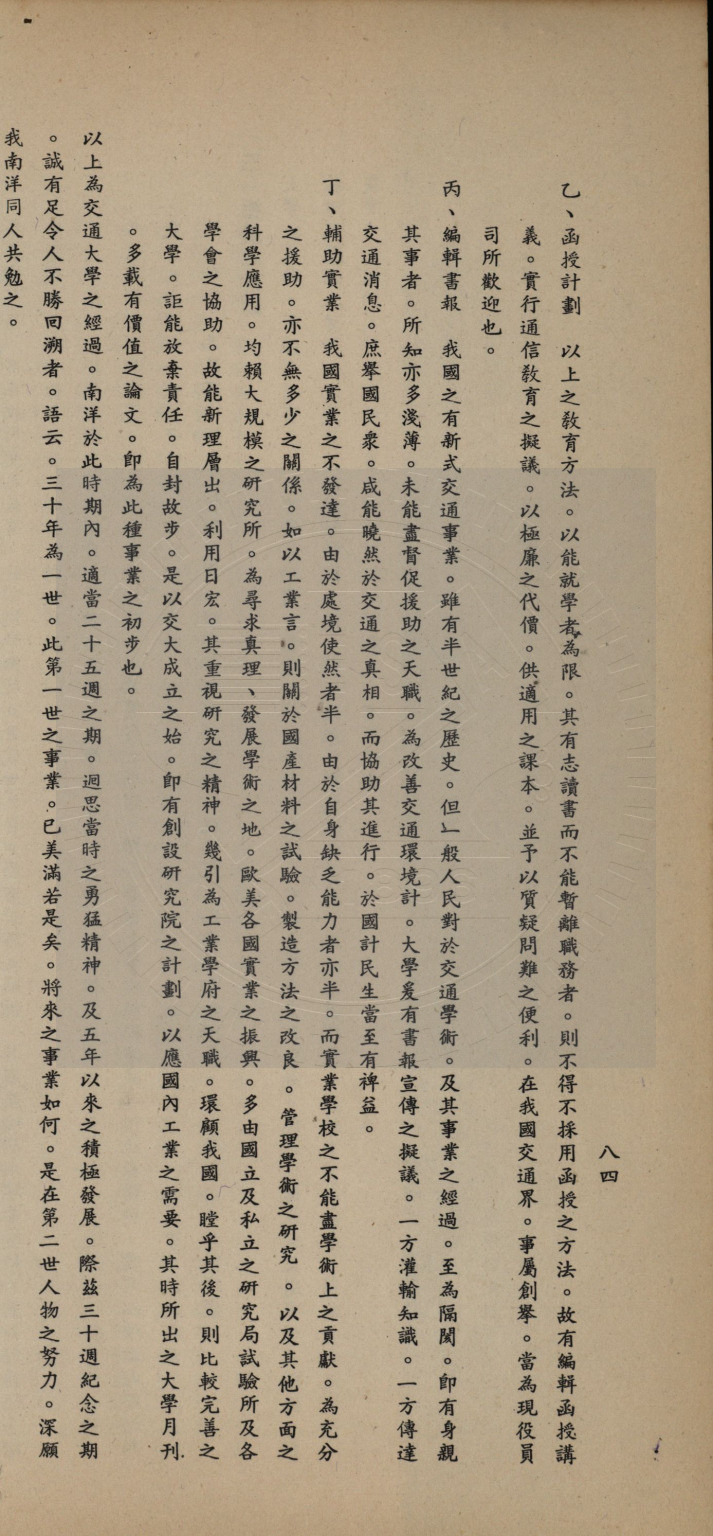 八四
乙、函授計劃　以上之敎育方法。以能就學者為限。其有志讀書而不能暫離職務者。則不得不採用函授之方法。故有編輯函授講
義。實行通信敎育之擬議。以極廉之代價。供適用之課本。並予以質疑問難之便利。在我國交通界。事屬創舉。當為現役員
司所歡迎也。
丙、編輯書報　我國之有新式交通事業。雖有半世紀之歷史。但一般人民對於交通學術。及其事業之經過。至為隔閡。即有身親
其事者。所知亦多淺薄。未能盡督促援助之天職。為改善交通環境計。大學爰有書報宣傳之擬議。一方灌輸知識。一方傳達
交通消息。庶舉國民衆。咸能曉然於交通之真相。而協助其進行。於國計民生當至有裨益。
丁、輔助實業　我國實業之不發達。由於處境使然者半。由於自身缺乏能力者亦半。而實業學校之不能盡學術上之貢獻。為充分
之援助。亦不無多少之關係。如以工業言。則關於國產材料之試驗。製造方法之改良。管理學術之研究。以及其他方面之
科學應用。均賴大規模之研究所。為尋求真理、發展學術之地。歐美各國實業之振興。多由國立及私立之研究局試驗所及各
學會之協助。故能新理層出。利用日宏。其重視研究之精神。幾引為工業學府之天職。環顧我國。瞠乎其後。則比較完善之
大學。詎能放棄責任。自封故步。是以交大成立之始。即有創設研究院之計劃。以應國內工業之需要。其時所出之大學月刊
。多載有價值之論文。即為此種事業之初步也。
以上為交通大學之經過。南洋於此時期內。適當二十五週之期。迴思當時之勇猛精神。及五年以來之積極發展。際茲三十週紀念之期
。誠有足令人不勝回溯者。語云。三十年為一世。此第一世之事業。已美滿若是矣。將來之事業如何。是在第二世人物之努力。深願
我南洋同人共勉之。